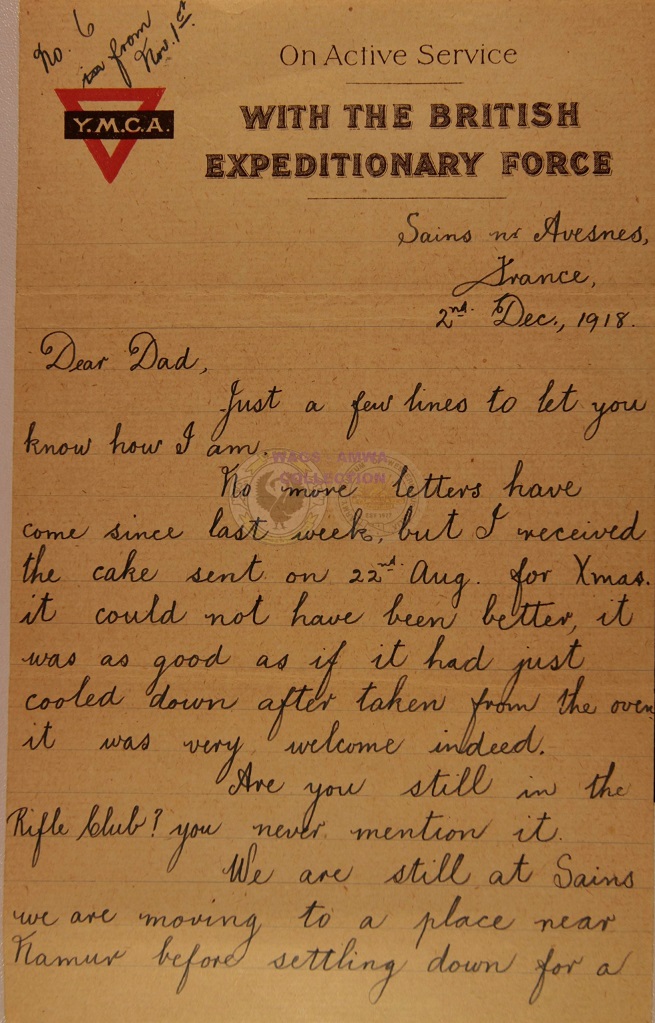 No. 6
from
Nov. 1st
Y.M.C.A.
On Active Service
WITH THE BRITISH
EXPEDITIONARY FORCE
Sains nr Avesnes,
France,
2nd Dec., 1918.
Dear Dad,
Just a few lines to let you
know how I am.
No more letters have
come since last week, but I received
the cake sent on 22nd Aug. for Xmas.
it could not have been better, it
was as good as if it had just
cooled down after taken from the oven
it was very welcome indeed.
Are you still in the
Rifle Club? you never mention it.
We are still at Sains
we are moving to a place near
Namur before settling down for a
WAGS AMWA
COLLECTION